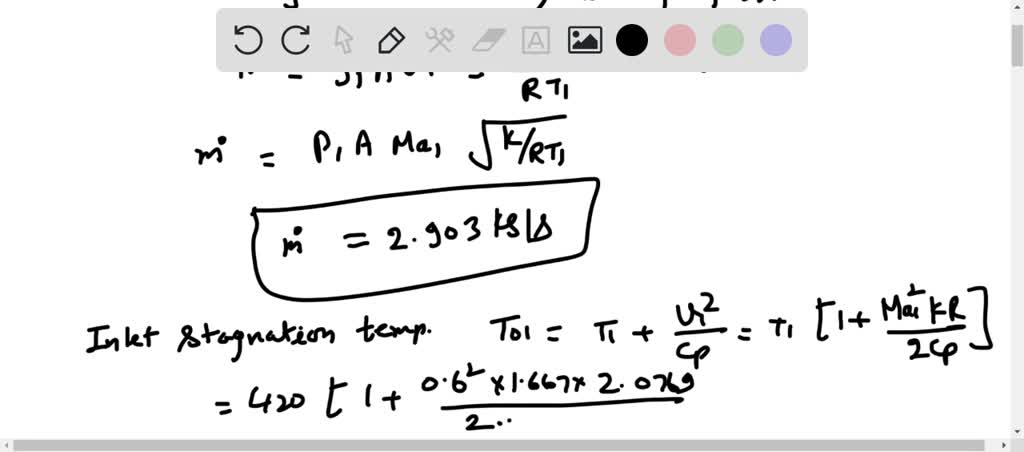 RT₁
ṁ = P₁ A Ma₁ √K/RT₁
ṁ = 2.903 kg/s
Inlet Stagnation temp. T01 = T₁ + U₁²/Cp = T₁ [1 + Ma₁² KR/2Cp]
= 420 [ 1 + 0.6² × 1.667 × 2.0769/2..